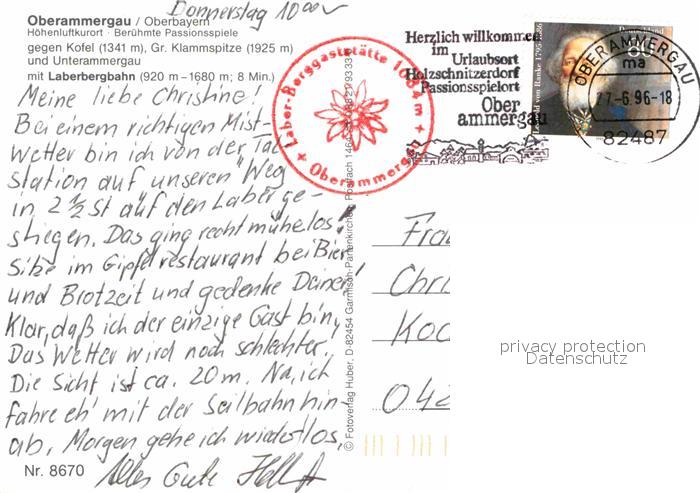 Donnerstag 10 00
Oberammergau / Oberbayern
Höhenluftkurort · Berühmte Passionsspiele
gegen Kofel (1341 m), Gr. Klammspitze (1925 m)
und Unterammergau
mit Laberbergbahn (920 m – 1680 m; 8 Min.)
Meine liebe Christine!
Bei einem richtigen Mist-
Wetter bin ich von der Tal
station auf unseren Weg
in 2 ½ st auf den Laber ge-
stiegen. Das ging recht mühelos.
Sitze im Gipfelrestaurant bei Bier
und Brotzeit und gedenke Deiner!
Klar, daß ich der einzige Gast bin,
Das Wetter wird noch schlechter.
Die Sicht ist ca. 20 m. Na, ich
fahre eh' mit der Seilbahn hin-
ab. Morgen gehe ich wieder los,
Alles Gute
Nr. 8670
Laber-Berggaststätte 1684 m
Oberammergau
© Fotoverlag Huber, D-82454 Garmisch-Partenkirchen, Postfach
Herzlich willkommen
im
Urlaubsort
Holzschnitzerdorf
Passionsspielort
Ober
ammergau
Leopold von Ranke 1795-1886
Deutschland
80
OBERAMMERGAU
ma
27.-6.96-18
82487
Frau
Chri
Koc
042
privacy protection
Datenschutz